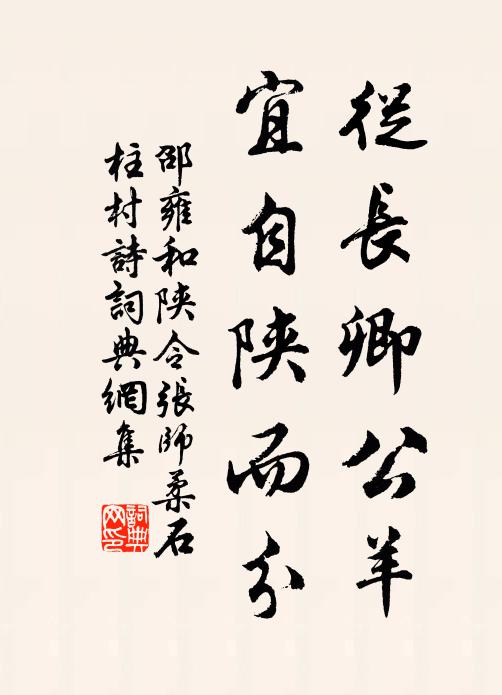 從長卿公羊
宜自陝而分
邵雍和陝令張師柔石
柱村詩詞典網集
詞典網印